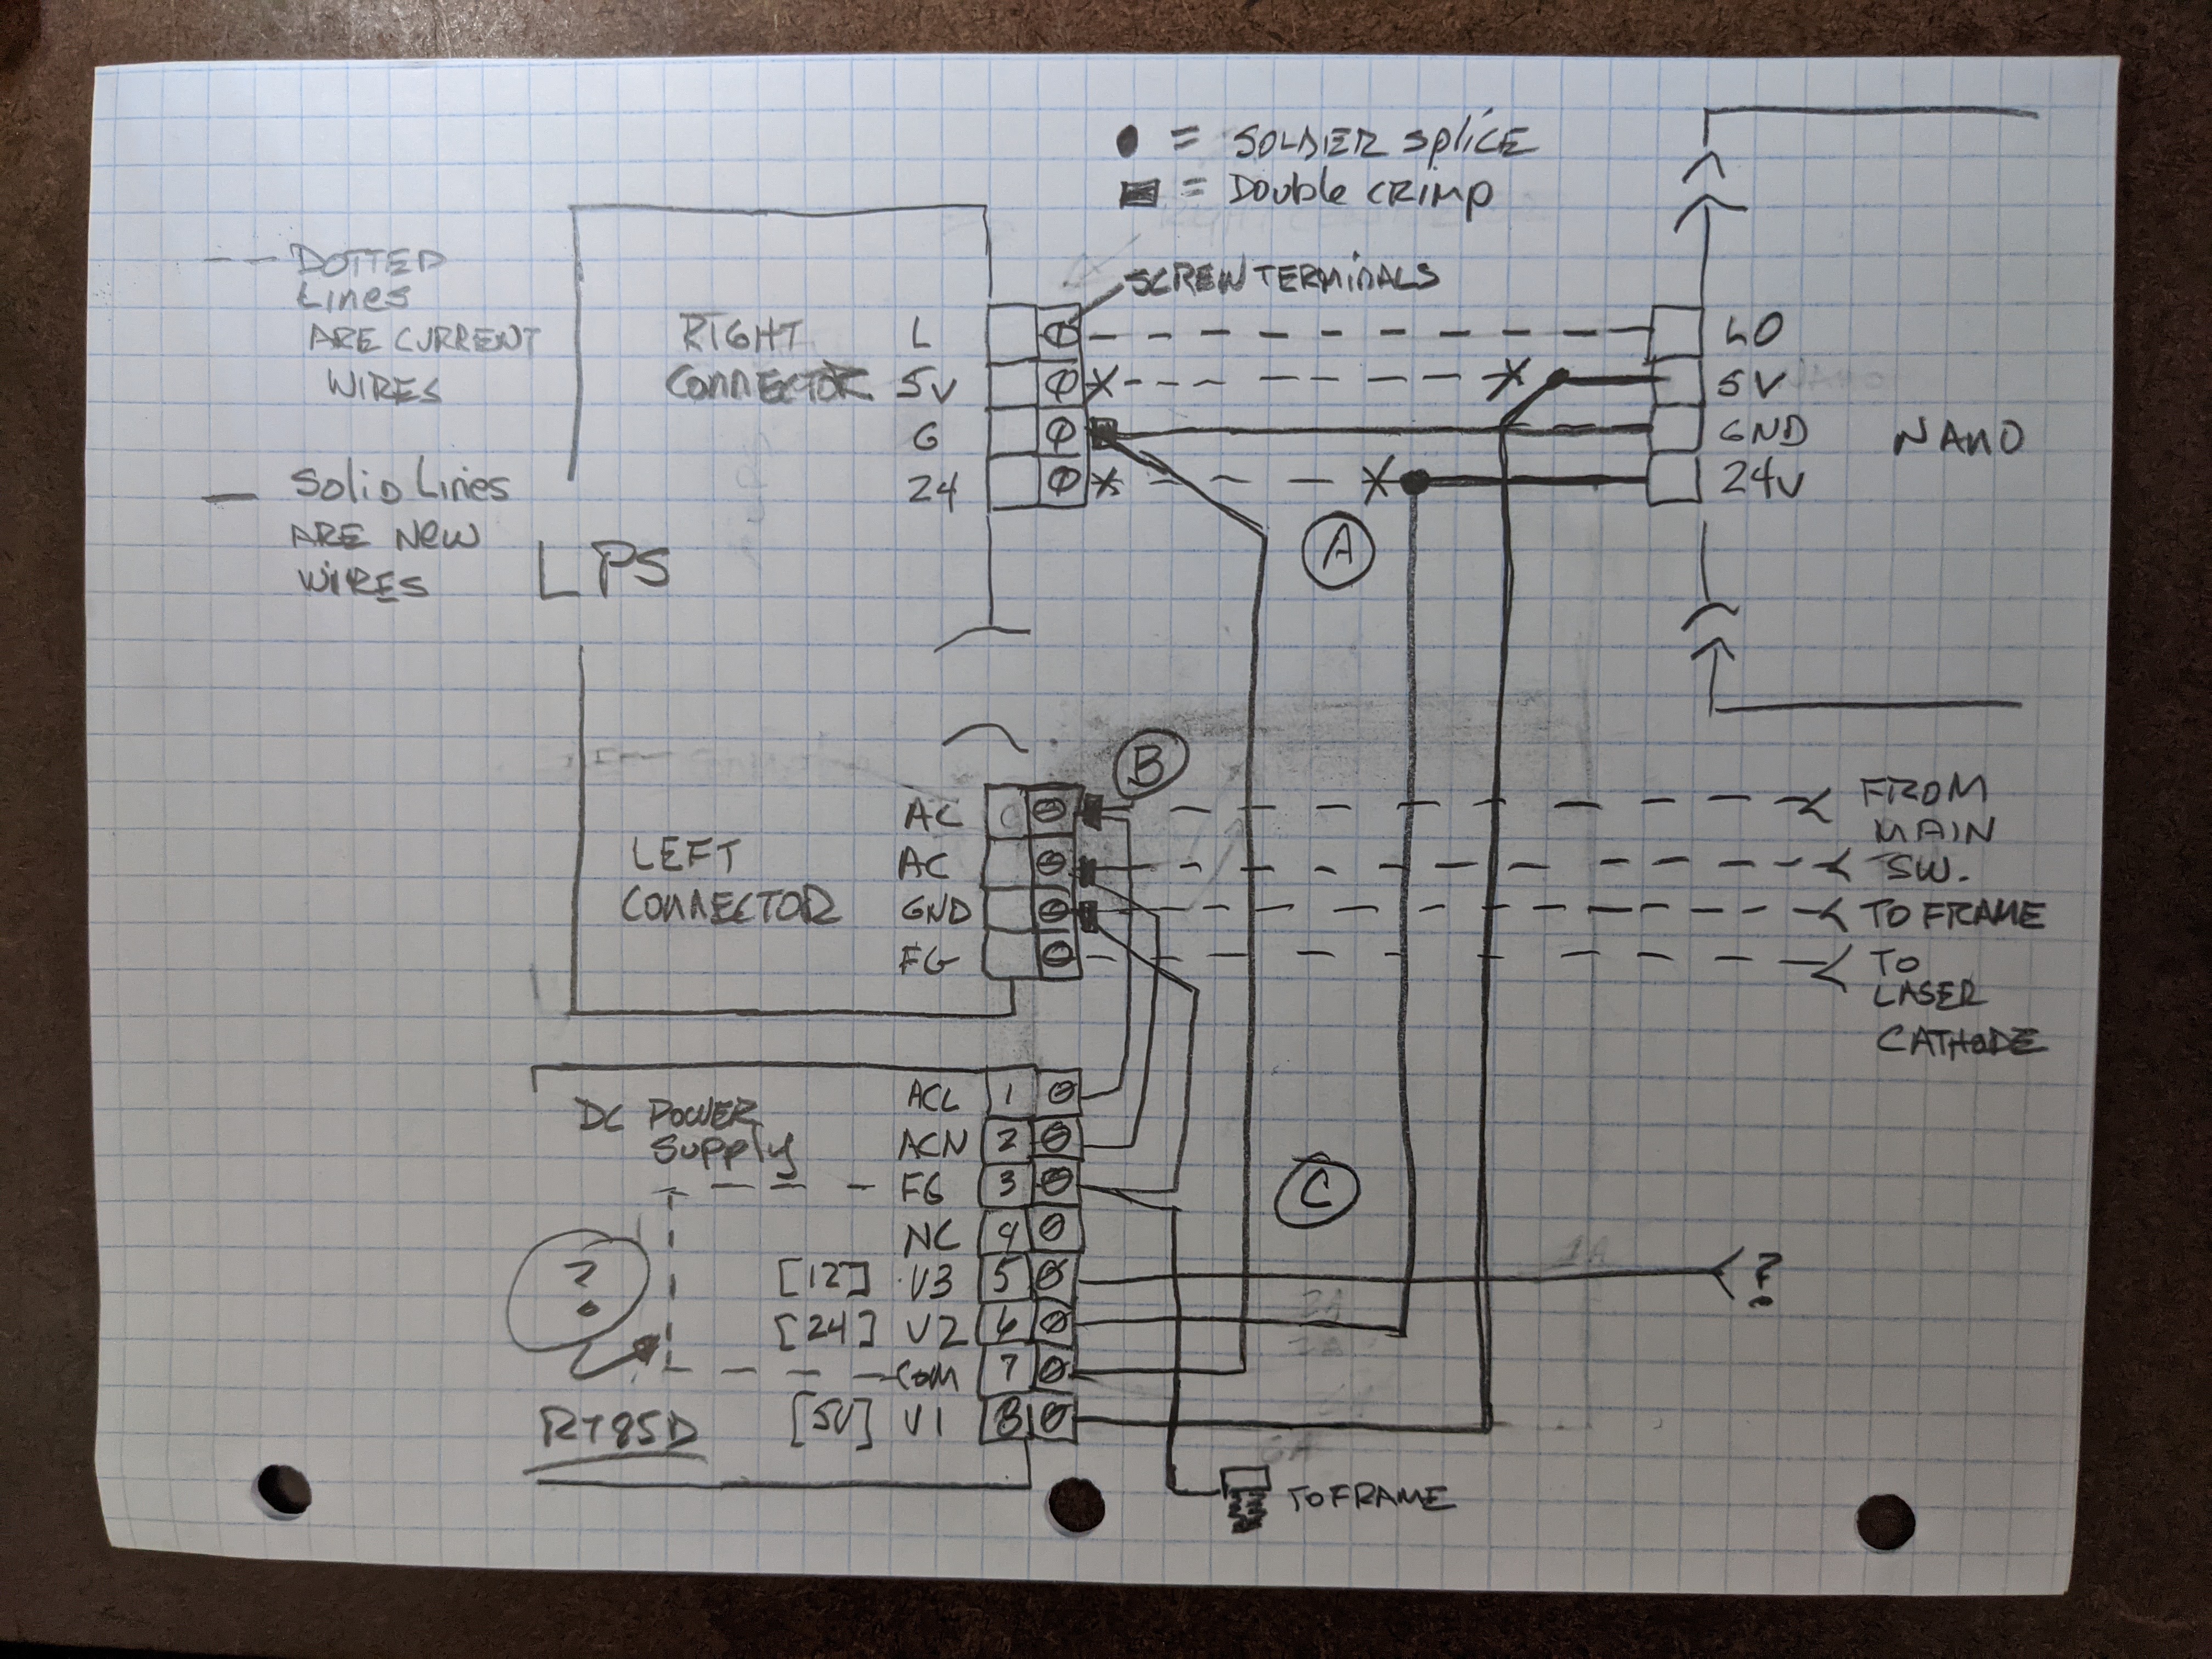 ● = SOLDER SPLICE
■ = DOUBLE CRIMP
-- DOTTED
LINES
ARE CURRENT
WIRES
— SOLID LINES
ARE NEW
WIRES
SCREW TERMINALS
RIGHT
CONNECTOR
L
5V
G
24
LPS
LO
5V
GND
24V
NANO
A
B
LEFT
CONNECTOR
AC
AC
GND
FG
FROM
MAIN
SW.
TO FRAME
TO
LASER
CATHODE
DC POWER
SUPPLY
ACL 1
ACN 2
FG 3
NC 4
[12] V3 5
[24] V2 6
COM 7
[5V] V1 8
?
RT85D
C
1A
2A
?
TO FRAME